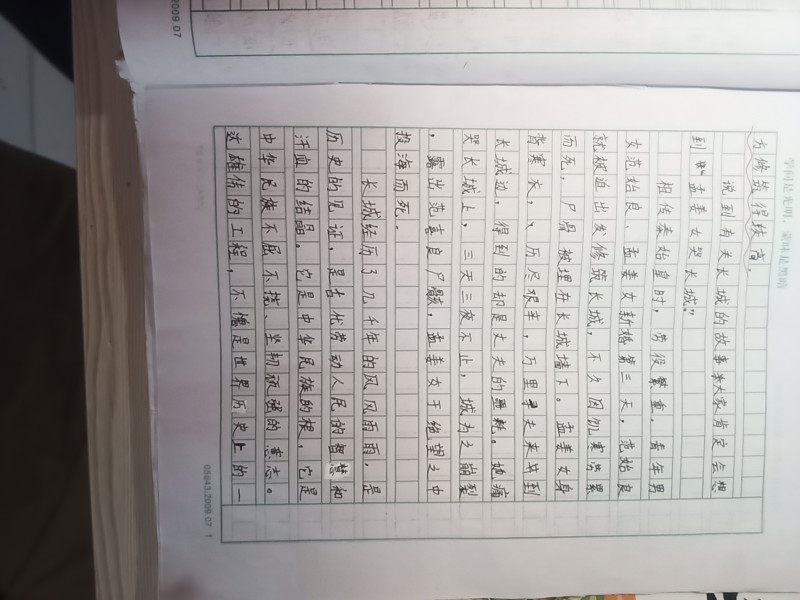 学问是光明，蒙昧是黑暗
方修筑得较高。
说到有关长城的故事来大家肯定会想
到“孟姜女哭长城。”
相传秦始皇时，劳役繁重，青年男
女范始良、孟姜女新婚第三天，范始良
就被迫出发修筑长城，不久因饥寒劳累
而死，尸骨被埋在长城墙下。孟姜女身
背寒衣，、历尽艰辛，万里寻夫来到
长城边，得到的却是丈夫的噩耗。她痛
哭长城上，三天三夜不止，城为之崩裂
，露出范喜良尸骸，孟姜女于绝望之中
投海而死。
长城经历了几千年的风风雨雨，是
历史的见证，是古代劳动人民的智慧和
汗血的结晶。它是中华民族的根，它是
中华民族不屈不挠、坚韧顽强的意志。
这雄伟的工程，不愧是世界历史上的一
05643.2009.07 1
2009.07